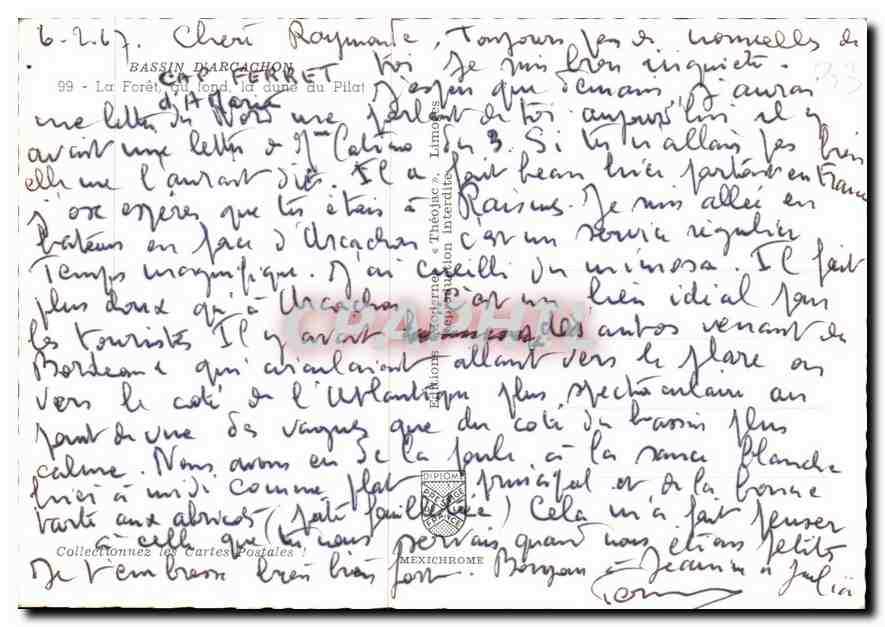 6-2.67. Cheri Raymonde, Toujours pas de nouvelles de
BASSIN D'ARCACHON
toi je suis bien inquiète.
CAP FERRET
99 - La Forêt, au fond, la dune du Pilat
J'espère que demain j'aurai
une lettre du me parlant de toi aujourd'hui il y
avait une lettre de Mme du 3. Si tu n'allais pas bien
elle me l'aurait dit. Il a fait beau hier partout en France
J'ose espérer que tu étais à Raismes. Je suis allée en
bateau en face d'Arcachon c'est un service régulier
Temps magnifique. J'ai cueilli du mimosa. Il fait
plus doux qu'à Arcachon c'est un lieu idial pour
les touristes Il y avait des autos venant de
Bordeaux qui circulaient allant vers le phare ou
vers le coté de l'Atlantique plus spectaculaire au
point de vue des vagues que du coté du bassin plus
calme. Nous avons eu de la poule à la sauce blanche
hier à midi comme plat principal et de la bonne
tarte aux abricots (pâte feuilletée) Cela m'a fait penser
à celle que tu nous servais quand nous étions petits
Collectionnez les Cartes Postales !
Je t'embrasse bien bien fort. Bonjour à Jeannine à Julia
Editions Modernes « Théojac », Limoges
Reproduction interdite
DIPLOME
PRESTIGE
FRANCE
MEXICHROME
CPAPHIL